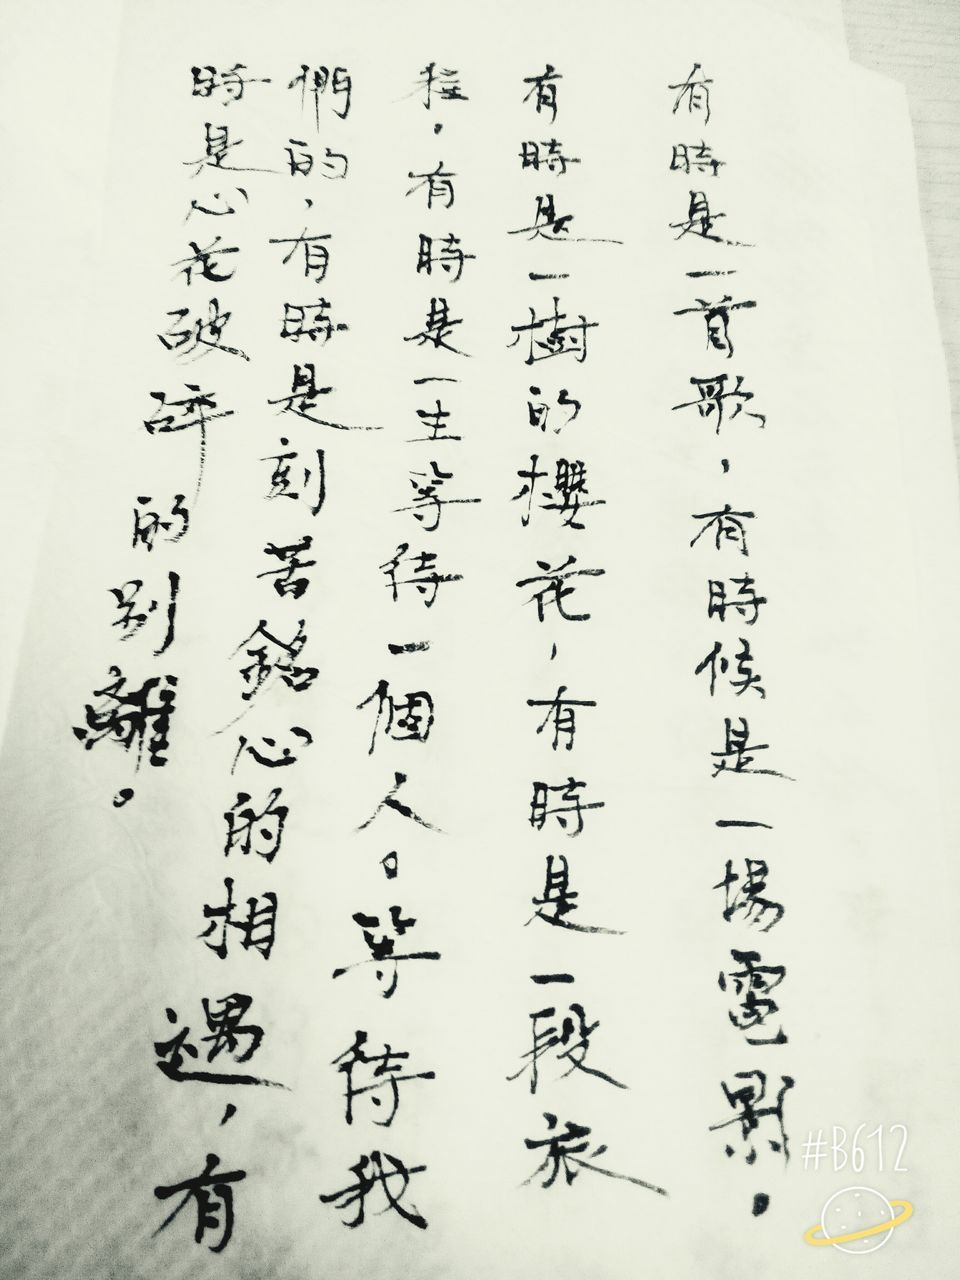 有時是一首歌，有時候是一場電影，
有時是一樹的櫻花，有時是一段旅
程，有時是一生等待一個人。等待我
們的，有時是刻苦銘心的相遇，有
時是心花破碎的别離。
#B612